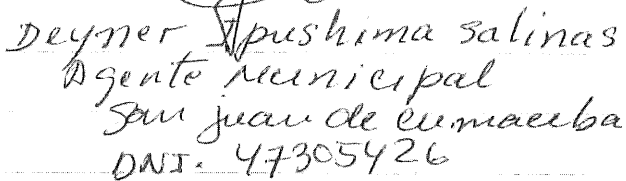 Deyner Ipushima Salinas
Agente Municipal
San juan de cumacuba
DNI. 47305426